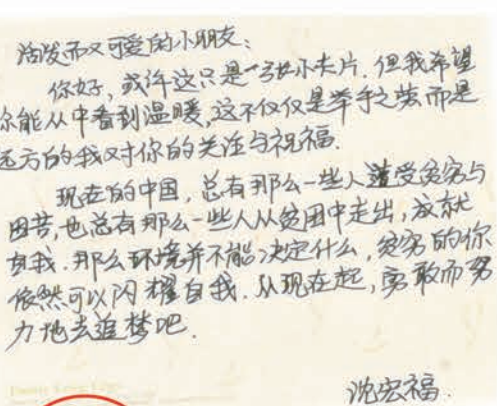 活发而又可爱的小朋友：
你好，或许这只是一张小卡片．但我希望
你能从中看到温暖，这不仅仅是举手之劳而是
远方的我对你的关注与祝福．
现在的中国，总有那么一些人遭受贫穷与
困苦，也总有那么一些人从贫困中走出，成就
自我．那么环境并不能决定什么，贫穷的你
依然可以闪耀自我．从现在起，勇敢而努
力地去追梦吧．
沈宏福．